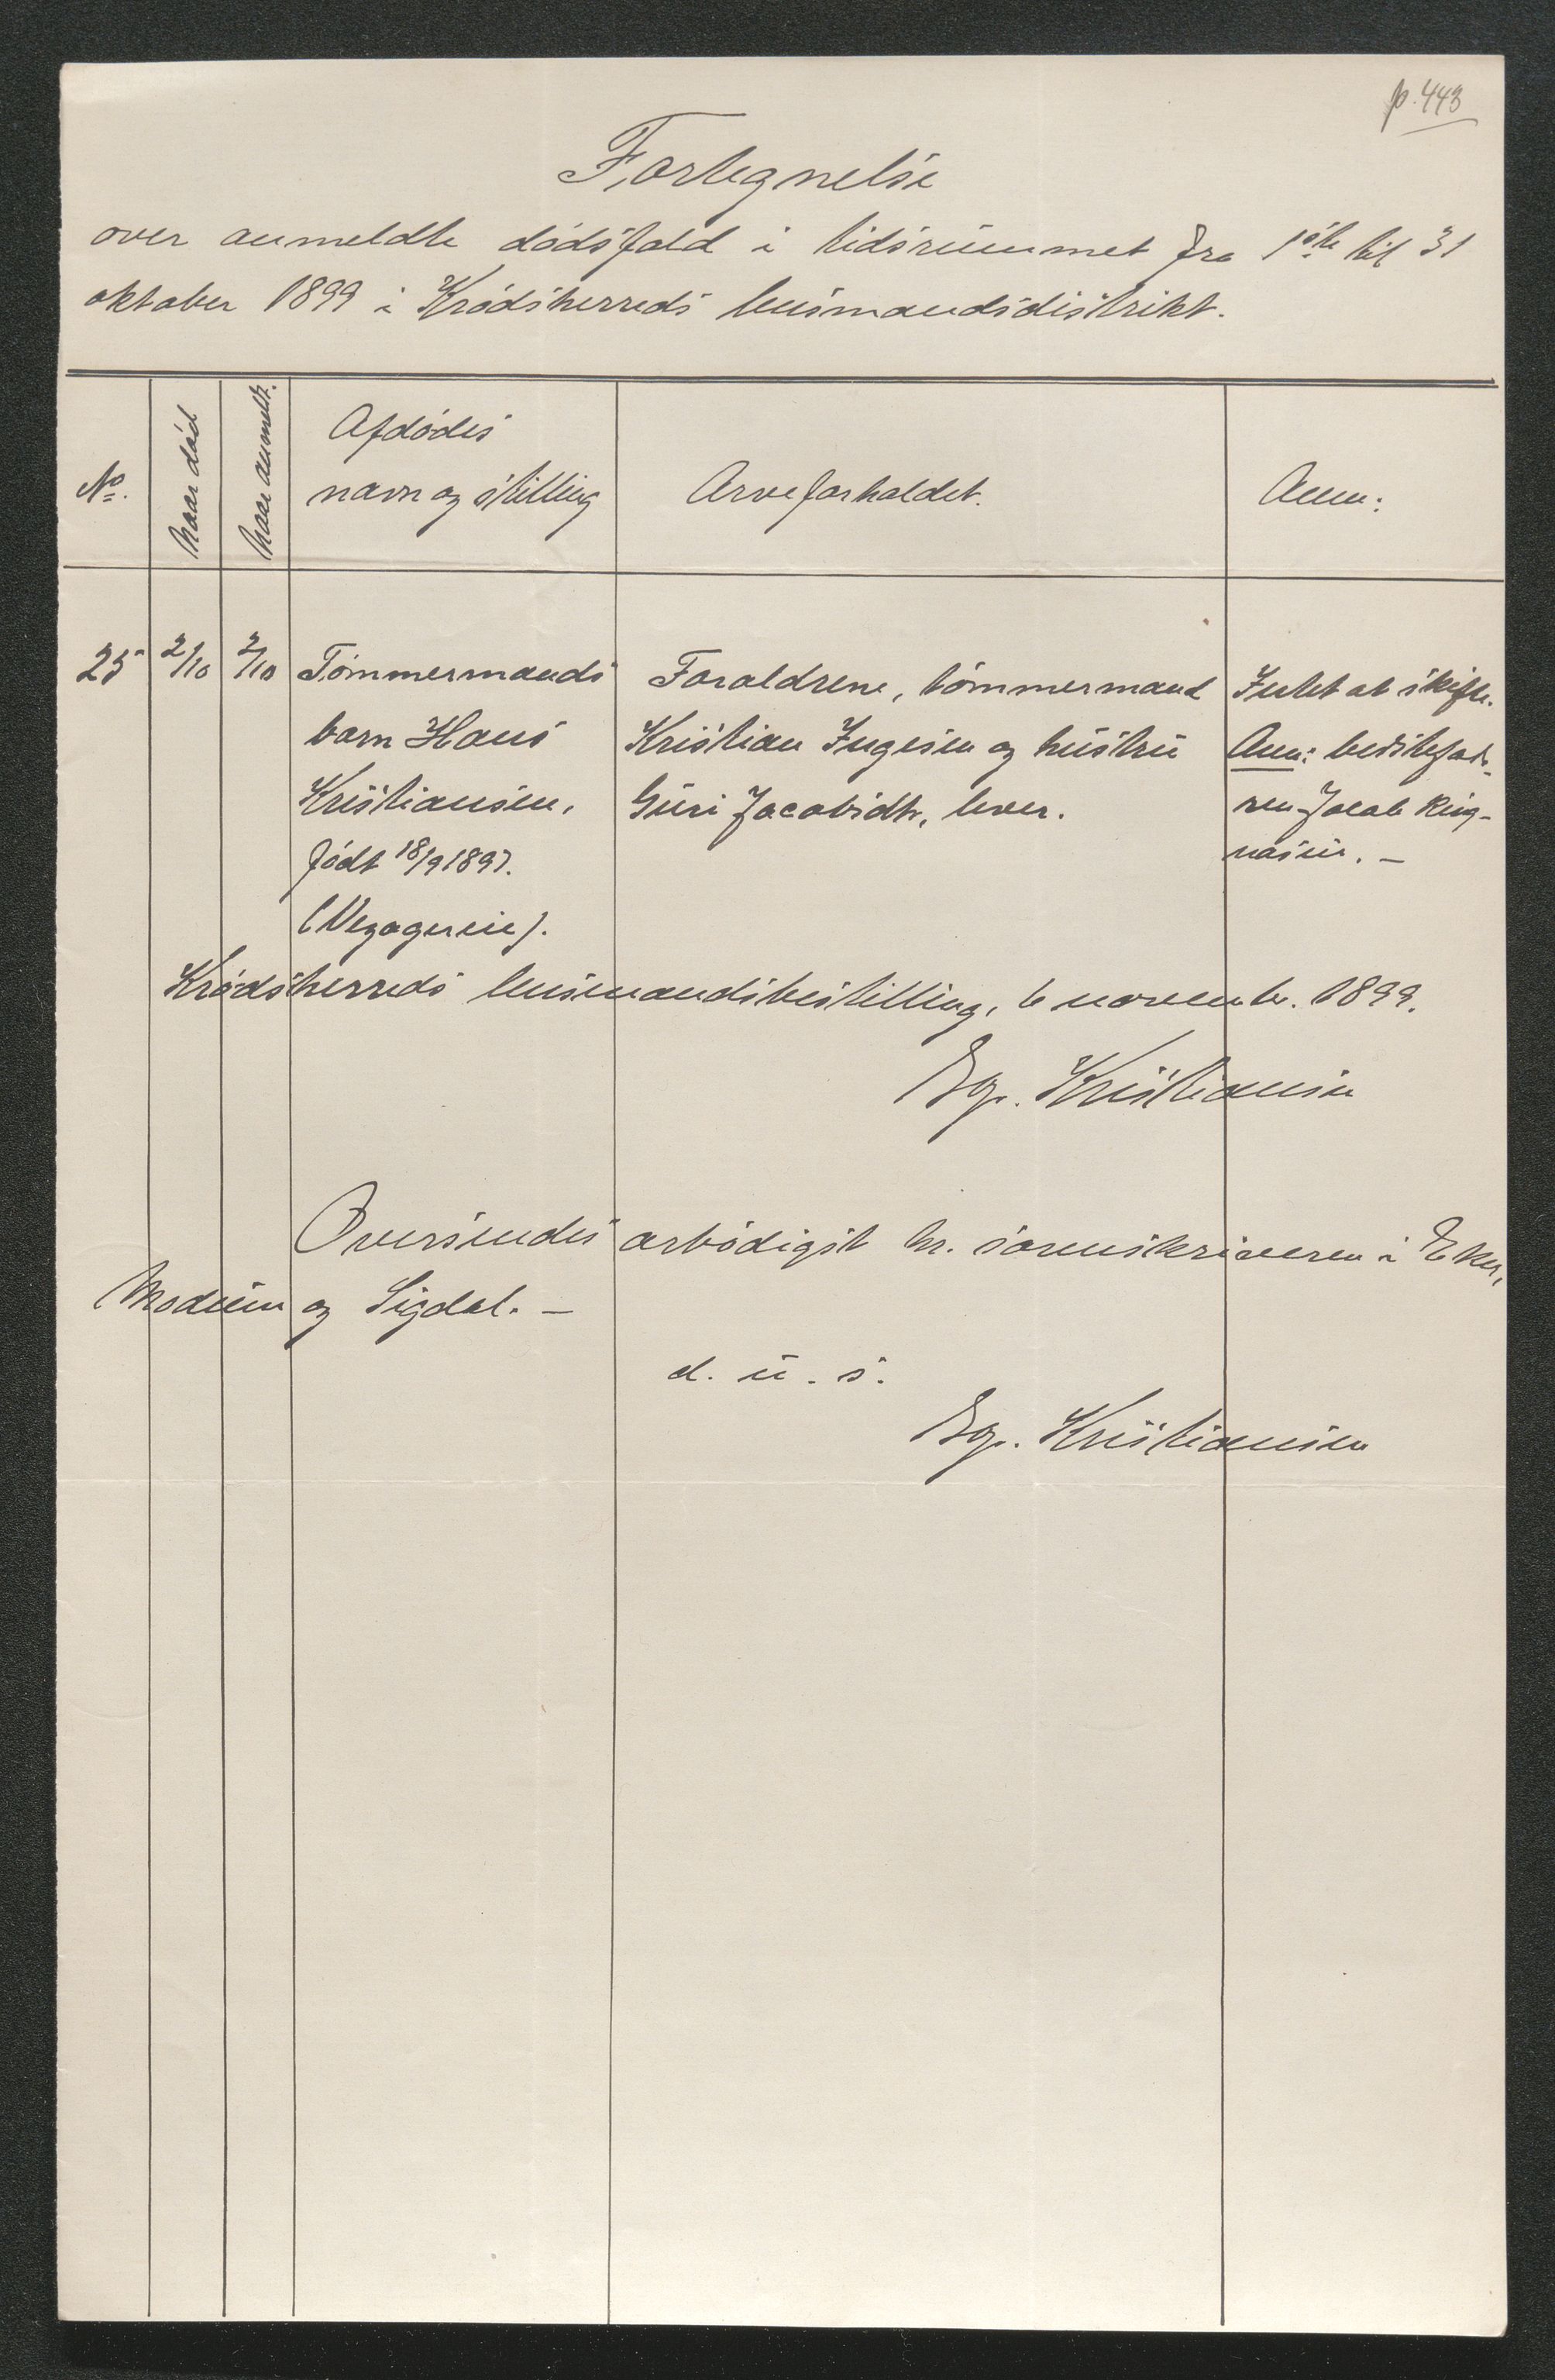 p. 443
Fortegnelse
over anmeldte dødsfald i tidsrummet fra 1ste til 31
oktober 1899 i Krødsherreds lensmandsdistrikt.
No.
Naar død
Naar anmeldt.
Afdødes
navn og stilling
Arveforholdet.
Anm:
25
2/10
2/10
Tømmermands
barn Hans
Kristiansen,
født 18/9 1897.
Forældrene, tømmermand
Kristian Ingesen og hustru
Guri Jacobsdtr, lever.
Intet at skifte.
Anm: bedstefad-
ren Jacob Ring-
næsie. –
Krødsherreds lensmandsbestilling, 6 novembr. 1899.
Kristiansen
Oversendes ærbødigst hr. sorenskriveren i Eker,
Modum og Sigdal. –
d. u. s.
Kristiansen